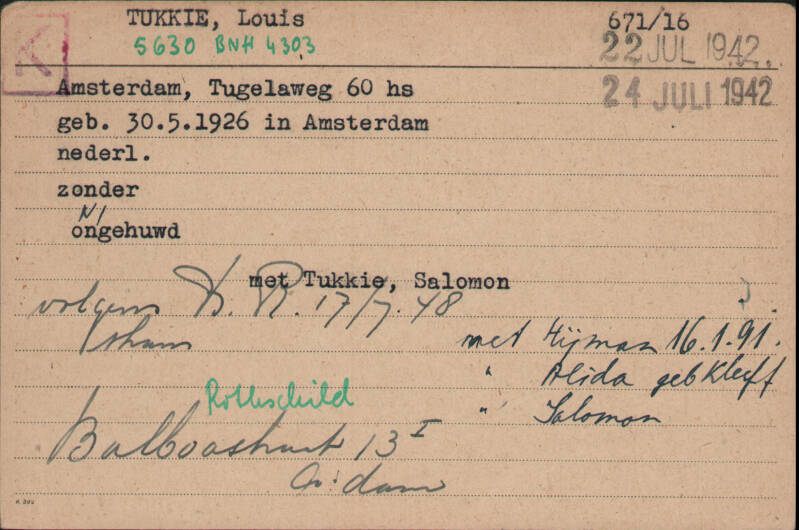 TUKKIE, Louis 671/16
5630 BNH 4303 22 JUL 1942
K
Amsterdam, Tugelaweg 60 hs 24 JULI 1942
geb. 30.5.1926 in Amsterdam
nederl.
zonder
NI
ongehuwd
met Tukkie, Salomon
volgens D. R. 17/7.48
thans met Hijman 16.1.91.
" Alida geb Kleeff
Rothschild " Salomon
Balboastraat 13 I
A'dam